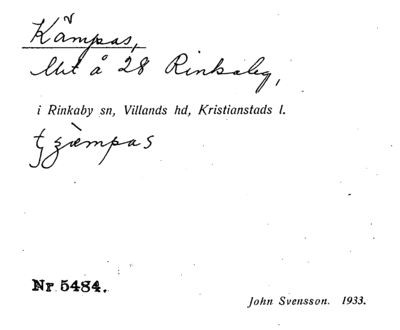 Kämpas,
å 28 Rinkaby,
i Rinkaby sn, Villands hd, Kristianstads l.
Nr 5484.
John Svensson. 1933.